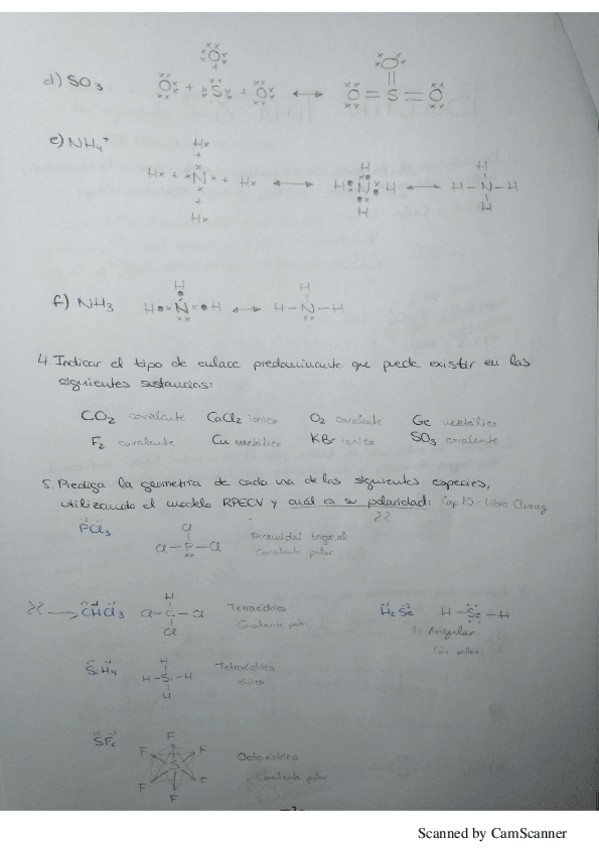 d) SO3
O + S + O ↔ O = S = O
O
e) NH4+
Hx + xNx + Hx ↔ H N H ↔ H - N - H
f) NH3
H N H ↔ H - N - H
4. Indicar el tipo de enlace predominante que puede existir en las
siguientes sustancias:
CO2 covalente CaCl2 iónico O2 covalente Ge metálico
F2 covalente Cu metálico KBr iónico SO3 covalente
5. Prediga la geometría de cada una de las siguientes especies,
utilizando el modelo RPECV y cuál es su polaridad: Cap 10 - Libro Chang
??
PCl3
Cl
Cl - P - Cl
Piramidal trigonal
Covalente polar
?? → CHCl3
H
Cl - C - Cl
Cl
Tetraédrica
Covalente polar
H2Se H - Se - H
Angular
SiH4
H
H - Si - H
H
Tetraédrica
SF6
F
F F
S
F F
F
Octaédrica
Covalente polar
Scanned by CamScanner